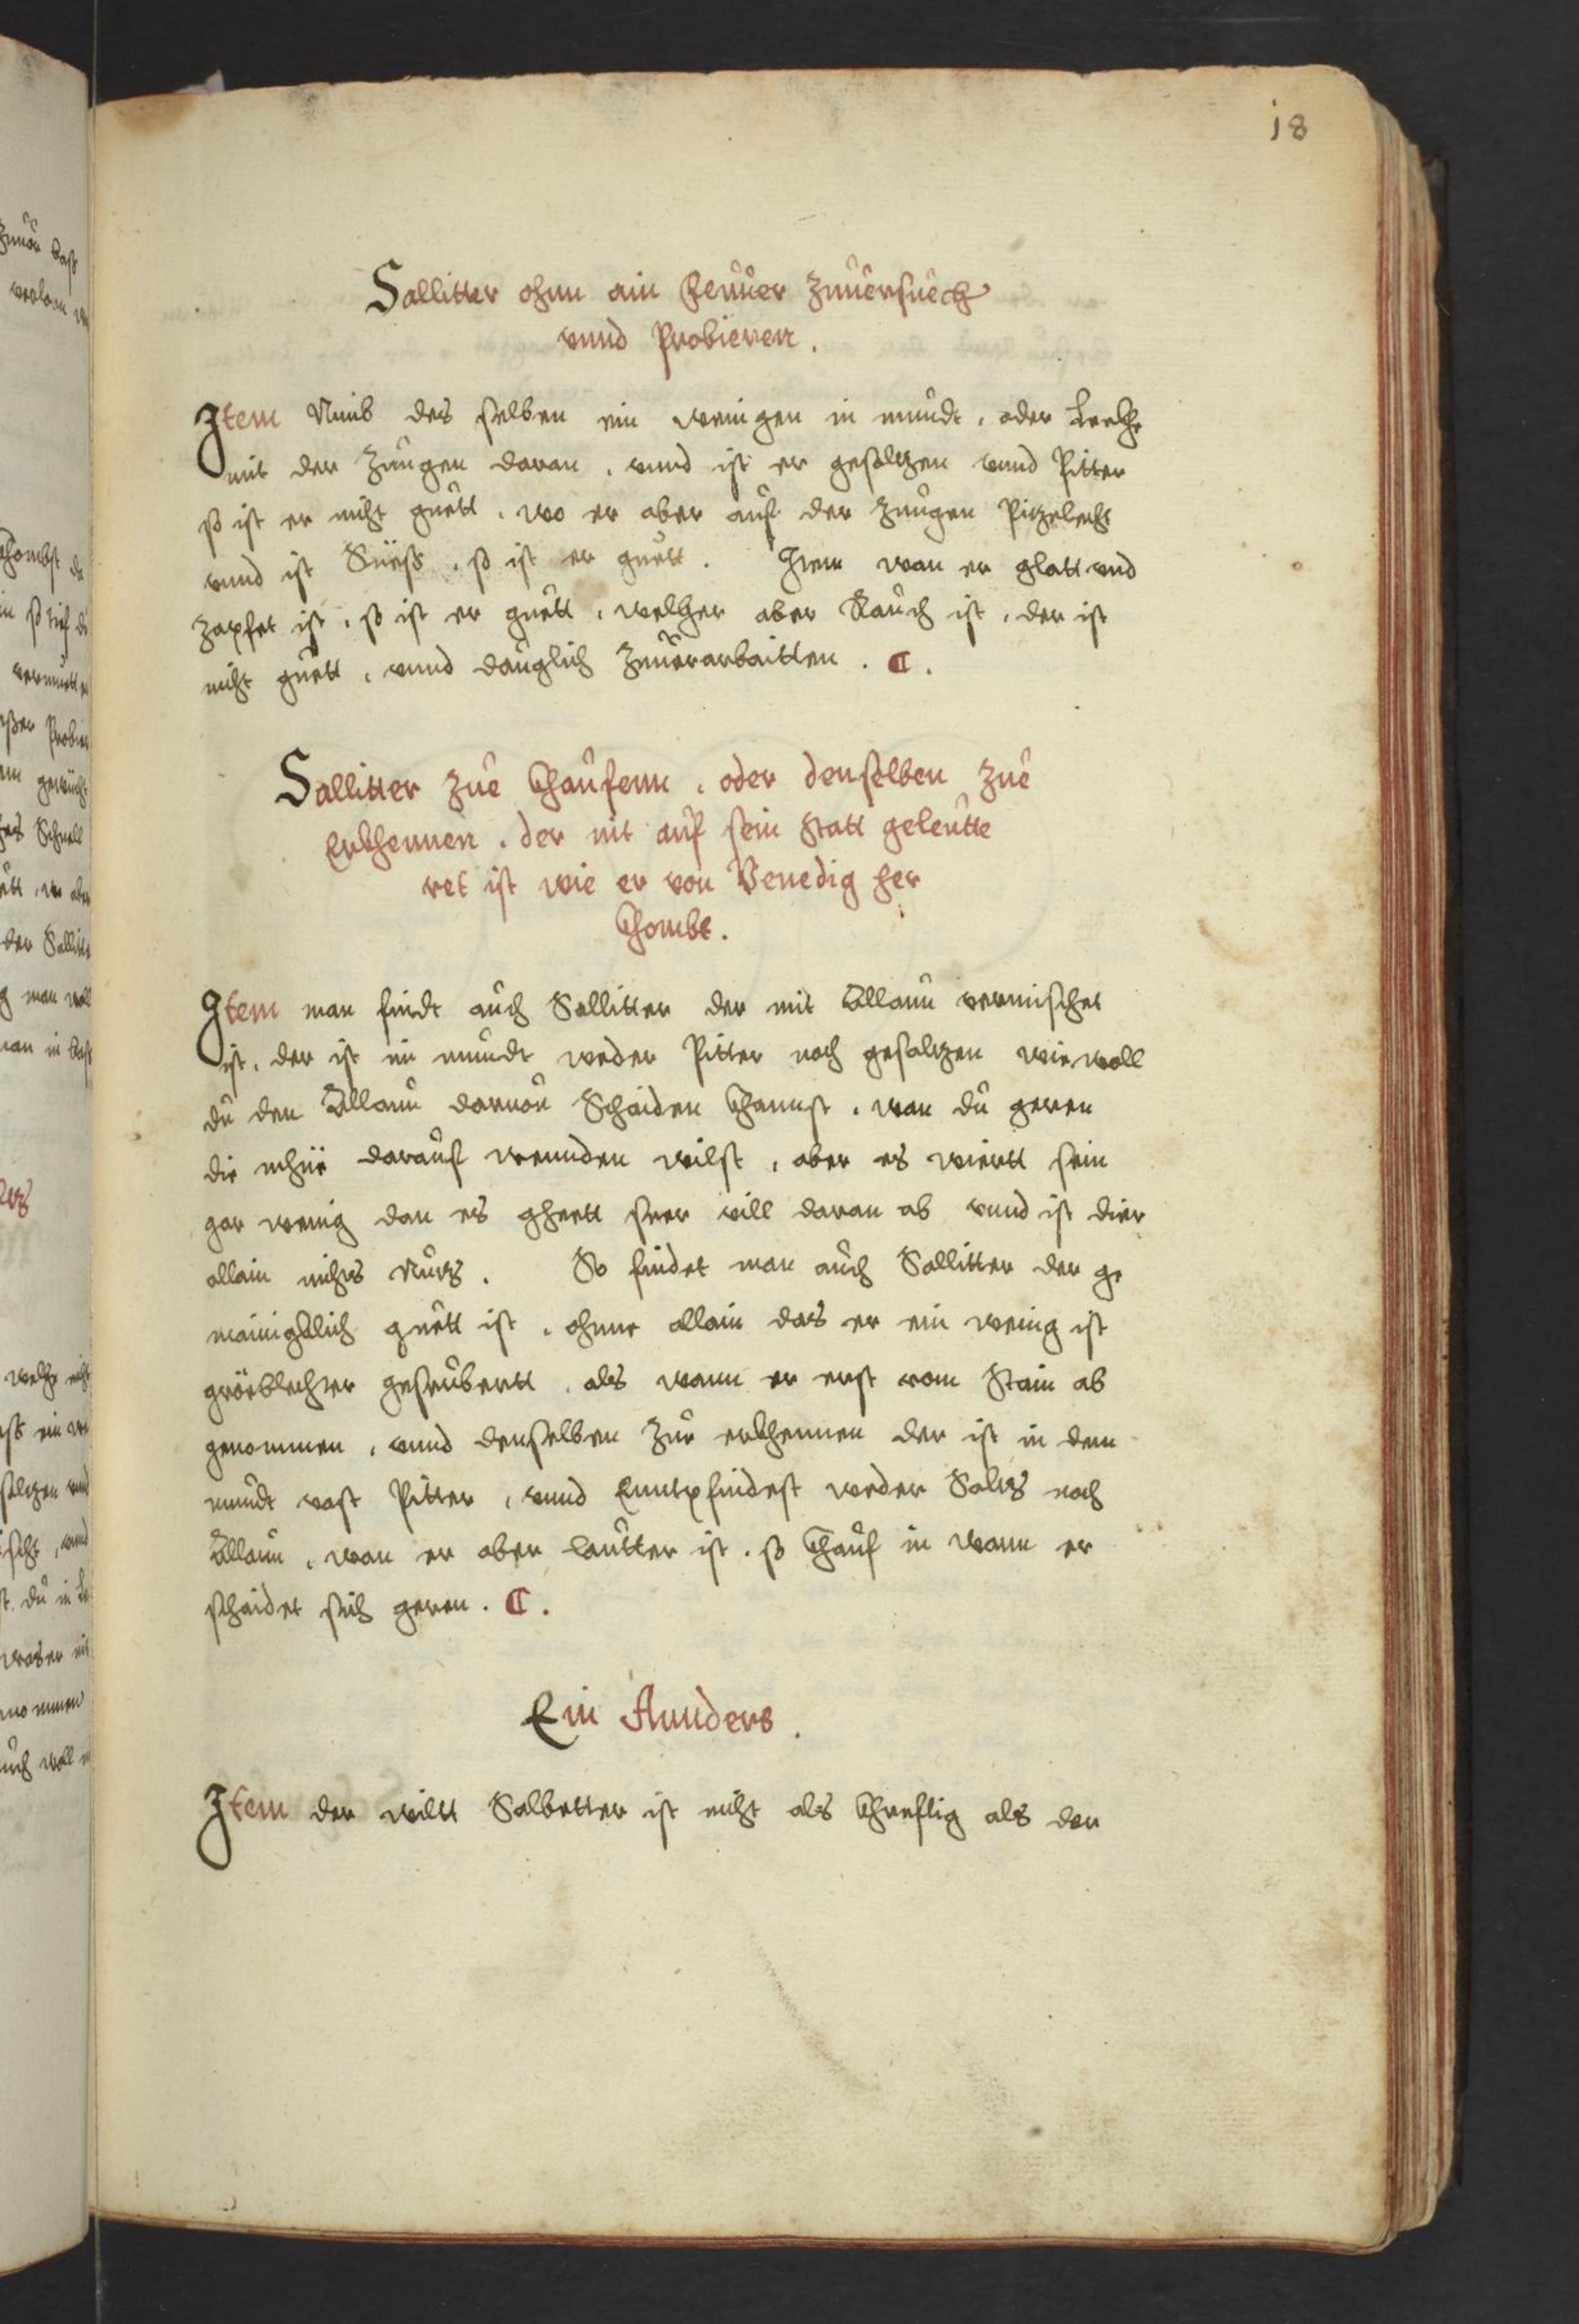 18
Sallitter ohnn ain Feuuer zuuersuech
vnnd Probieren.
Item Nimb des selben ein wenigen in mundt, oder Leckhe
mit der zungen daran, vnnd ist er gesaltzen vnnd Pitter
so ist er nicht guett, wo er aber auf der zungen Pitzelecht
vnnd ist Süess, so ist er guett. Item wan er glatt vnd
zapfet ist, so ist er guett, welcher aber Rauch ist, der ist
nicht guett, vnnd dauglich zuuerarbaitten.
Sallitter zue Khauffenn, oder denselben zue
Erkhennen, der nit auf sein Statt geleutte
ret ist wie er von Venedig her
Khombt.
Item man findt auch Sallitter der mit Allaun vermischet
ist, der ist im mundt weder Pitter noch gesaltzen wiewoll
du den Allaun daruon Schaiden Khannst, wan du geren
die mhüe darauf wennden wilst, aber es wiertt sein
gar wenig dan es gheett seer vill daran ab vnnd ist dier
allain nichts Nutz. So findet man auch Sallitter der ge
mainigklich guett ist, ohnne allain das er ein wenig ist
gröeblechter geseubertt, als wann er erst vom Stain ab
genommen, vnnd denselben zur erkhennen der ist in dem
mundt vast Pitter, vnnd Enntpfindest weder Saltz noch
Allaun, wan er aber lautter ist, so Khauf in wann er
schaidet sich geren.
Ein Annders.
Item der wiltt Salbetter ist nicht als Khrefftig als der